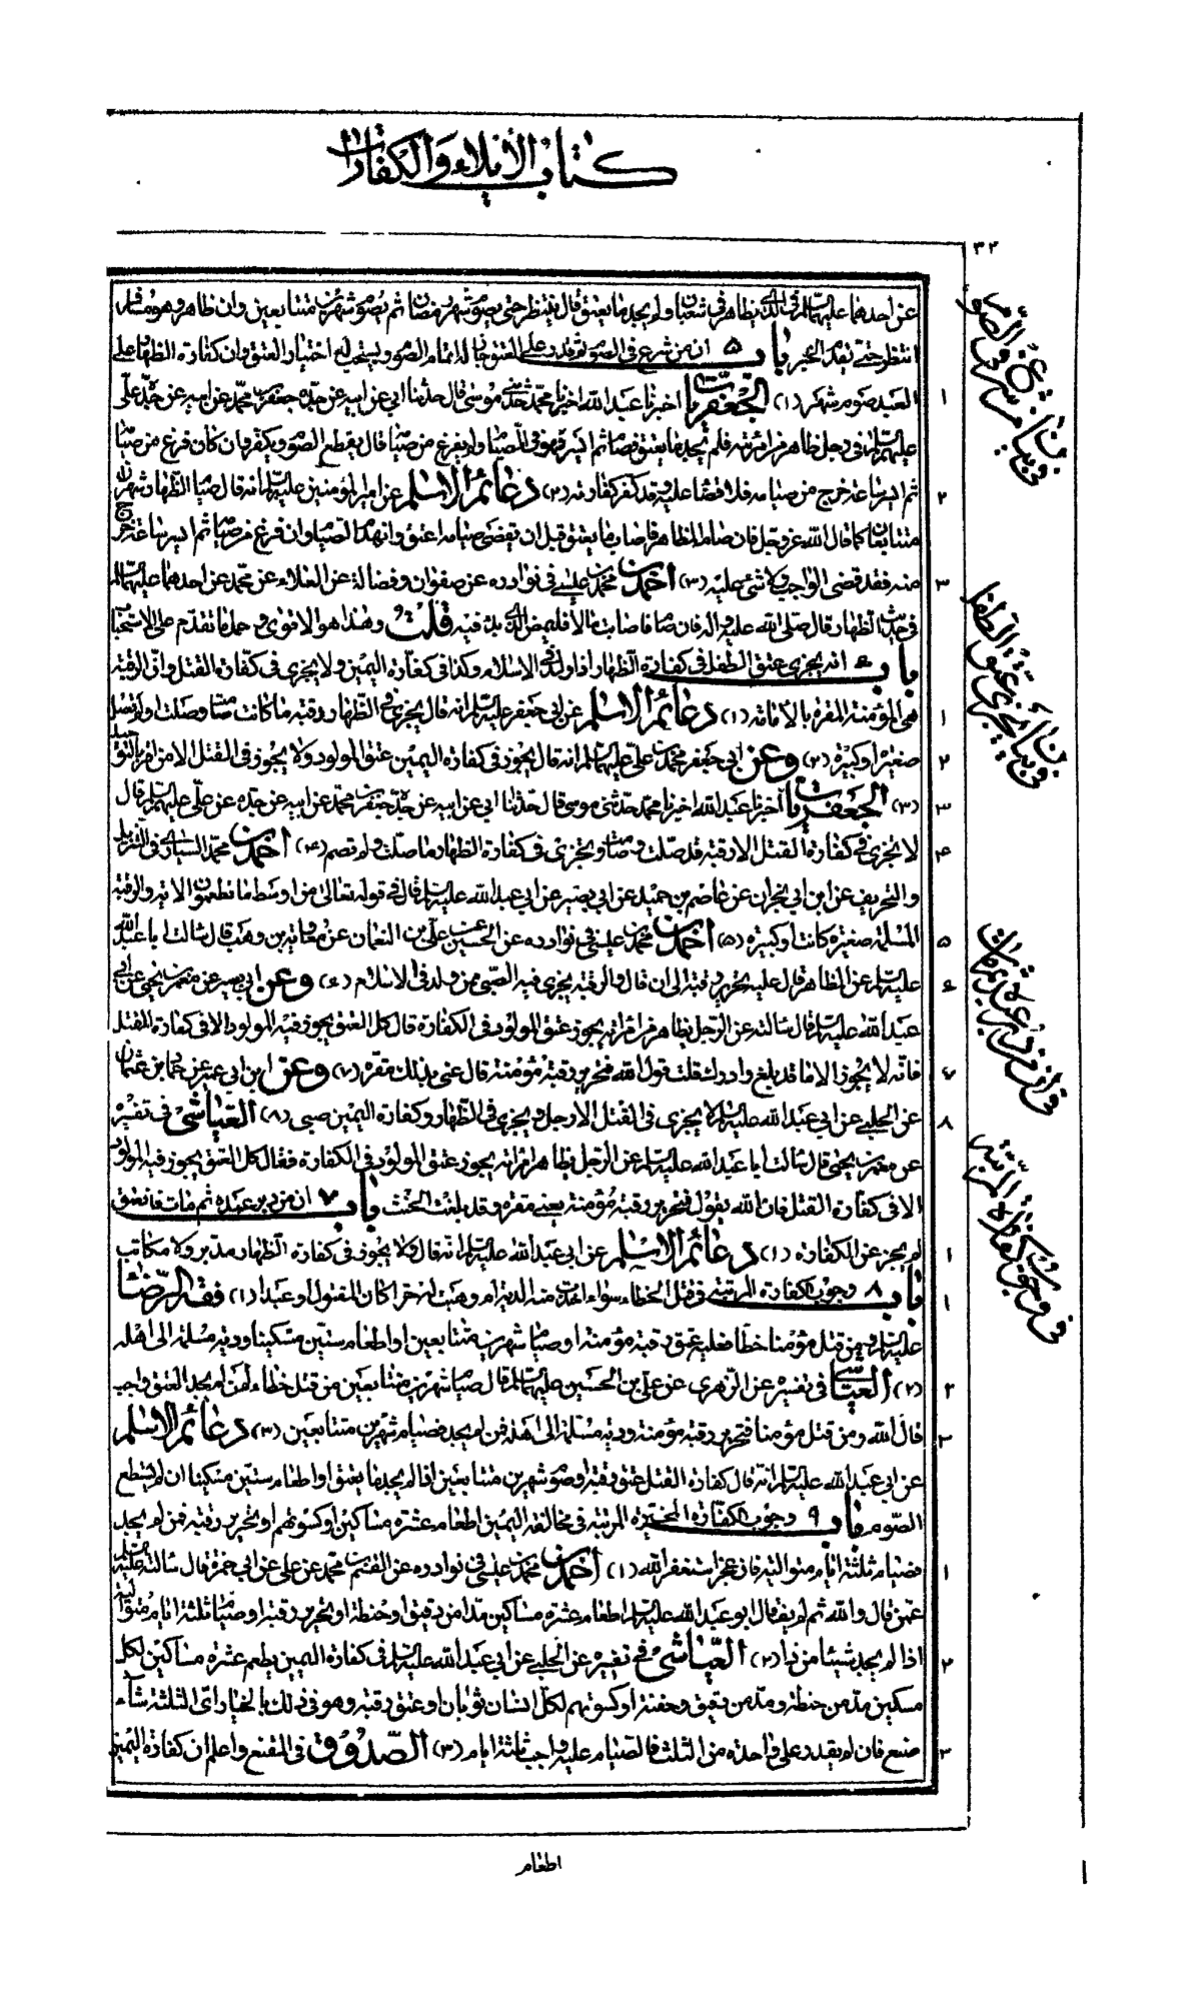 كتاب الإيلاء والكفارات
٣٢
عن احدهما عليهما السلام في الذي يظاهر في شعبان ولم يجد ما يعتق قال ينتظر حتى يصوم شهر رمضان ثم يصوم شهرين متتابعين وان ظاهر وهو مسافر
انتظر حتى يقدم الخبر باب ٥ ان من شرع في الصوم ثم قدر على العتق جاز له اتمام الصوم ويستحب له اختيار العتق وان كفارة الظهار على
العبد صوم شهر (١) الجعفريات اخبرنا عبد الله اخبرنا محمد حدثني موسى قال حدثنا ابي عن ابيه عن جده جعفر بن محمد عن ابيه عن جده علي
عليهم السلام في رجل ظاهر من امرئته فلم يجد ما يعتق فصام ثم ايسر فهو في الصيام ولم يفرغ من صيامه قال يقطع الصوم ويكفر وان كان فرغ من صيامه
ثم ايسر ساعة خرج من صيامه فلا قضاء عليه وقد كفر كفارته (٢) دعائم الاسلام عن امير المؤمنين عليه السلام انه قال صيام الظهار شهران
متتابعان كما قال الله عز وجل فان صام المظاهر فاصاب ما يعتق قبل ان تقضى صيامه اعتق وانهدم الصيام وان فرغ من صيامه ثم ايسر ساعة خرج
منه فقد قضى الواجب ولا شئ عليه (٣) احمد بن محمد بن عيسى في نوادره عن صفوان وفضالة عن العلاء عن محمد عن احدهما عليهما السلام
في حديث الظهار قال صلى الله عليه واله فان صام فاصاب مالا فليمض الذي بدء فيه قلت وهذا هو الاقوى وحمل ما تقدم على الاستحباب
باب ٦ انه يجزي عتق الطفل في كفارة الظهار اذا ولد في الاسلام وكذا في كفارة اليمين ولا يجزي في كفارة القتل وان الرقبة
هي المؤمنة المقرة بالامامة (١) دعائم الاسلام عن ابي جعفر عليه السلام انه قال يجزي في الظهار رقبة ما كانت صام وصلت ولم تصل
صغيرة او كبيرة (٢) وعن ابي جعفر محمد بن علي عليهما السلام انه قال يجوز في كفارة اليمين عتق المولود ولا يجوز في القتل الا من اقر بالتوحيد
(٣) الجعفريات اخبرنا عبد الله اخبرنا محمد حدثني موسى قال حدثنا ابي عن ابيه عن جده جعفر بن محمد عن ابيه عن جده عن علي عليهم السلام قال
لا يجزي في كفارة القتل الا رقبة قد صلت وصامت ويجزي في كفارة الظهار ما صلت ولم تصم (٤) احمد بن محمد السياري في التنزيل
والتحريف عن ابن ابي نجران عن عاصم بن حميد عن ابي بصير عن ابي عبد الله عليه السلام قال في قوله تعالى من اوسط ما تطعمون الاية والرقبة
المسلمة صغيرة كانت او كبيرة (٥) احمد بن محمد بن عيسى في نوادره عن الحسين عن علي بن النعمان عن معاوية بن وهب قال سالت ابا عبد الله
عليه السلام عن المظاهر قال عليه تحرير رقبة الى ان قال والرقبة يجزي فيه الصبي ممن ولد في الاسلام (٦) وعن ابي عمير عن معمر بن يحيى عن ابي
عبد الله عليه السلام قال سالته عن الرجل يظاهر من امراته يجوز عتق المولود في الكفارة قال كل العتق يجوز فيه المولود الا في كفارة القتل
فانه لا يجوز الا ما قد بلغ وادرك قلت قول الله فتحرير رقبة مؤمنة قال عنى بذلك مقرة (٧) وعن ابن ابي عمير عن حماد بن عثمان
عن الحلبي عن ابي عبد الله عليه السلام لا يجزي في القتل الا رجل ويجزي في الظهار وكفارة اليمين صبي (٨) العياشي في تفسيره
عن معمر بن يحيى قال سالت ابا عبد الله عليه السلام عن الرجل يظاهر امراته يجوز عتق المولود في الكفارة فقال كل العتق يجوز فيه المولود
الا في كفارة القتل فان الله يقول فتحرير رقبة مؤمنة يعني مقرة وقد بلغت الحنث باب ٧ ان من دبر عبده ثم مات فانعتق
لم يجز عن الكفارة (١) دعائم الاسلام عن ابي عبد الله عليه السلام انه قال ولا يجوز في كفارة الظهار مدبر ولا مكاتب
باب ٨ وجوب الكفارة المرتبة في قتل الخطاء سواء اخذت منه الدية ام وهبت له حرا كان المقتول او عبدا (١) فقه الرضا
عليه السلام ومن قتل مؤمنا خطأ فعليه عتق رقبة مؤمنة او صيام شهرين متتابعين او اطعام ستين مسكينا ودية مسلمة الى اهله
(٢) العياشي في تفسيره عن الزهري عن علي بن الحسين عليهما السلام قال صيام شهرين متتابعين من قتل خطاء لمن لم يجد العتق واجب
قال الله ومن قتل مؤمنا فتحرير رقبة مؤمنة ودية مسلمة الى اهله فمن لم يجد فصيام شهرين متتابعين (٣) دعائم الاسلام
عن ابي عبد الله عليه السلام انه قال كفارة القتل عتق رقبة او صوم شهرين متتابعين اذا لم يجد ما يعتق او اطعام ستين مسكينا ان لم يستطع
الصوم باب ٩ وجوب الكفارة المخيرة المرتبة في مخالفة اليمين اطعام عشرة مساكين او كسوتهم او تحرير رقبة فمن لم يجد
فصيام ثلثة ايام متوالية فان عجز استغفر الله (١) احمد بن محمد بن عيسى في نوادره عن القسم بن محمد عن علي عن ابي حمزة قال سالته عليه السلام
عمن قال والله ثم لم يف قال ابو عبد الله عليه السلام اطعام عشرة مساكين مدا من دقيق او حنطة او تحرير رقبة او صيام ثلثة ايام متوالية
اذا لم يجد شيئا من ذا (٢) العياشي في تفسيره عن الحلبي عن ابي عبد الله عليه السلام في كفارة اليمين يطعم عشرة مساكين لكل
مسكين مد من حنطة ومد من دقيق وحفنة او كسوتهم لكل انسان ثوبان او عتق رقبة وهو في ذلك بالخيار اي الثلثة شاء
صنع فان لم يقدر على واحدة من الثلث فالصيام عليه واجب ثلثة ايام (٣) الصدوق في المقنع واعلم ان كفارة اليمين
اطعام